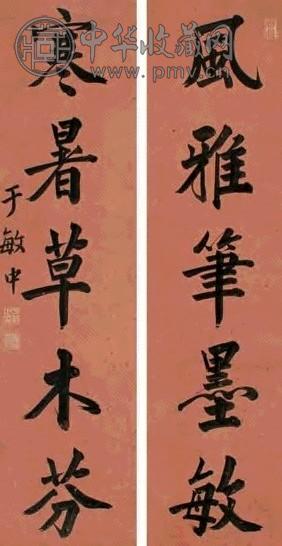 風雅筆墨敏
寒暑草木芬
于敏中
中华收藏网
www.pmv.cn